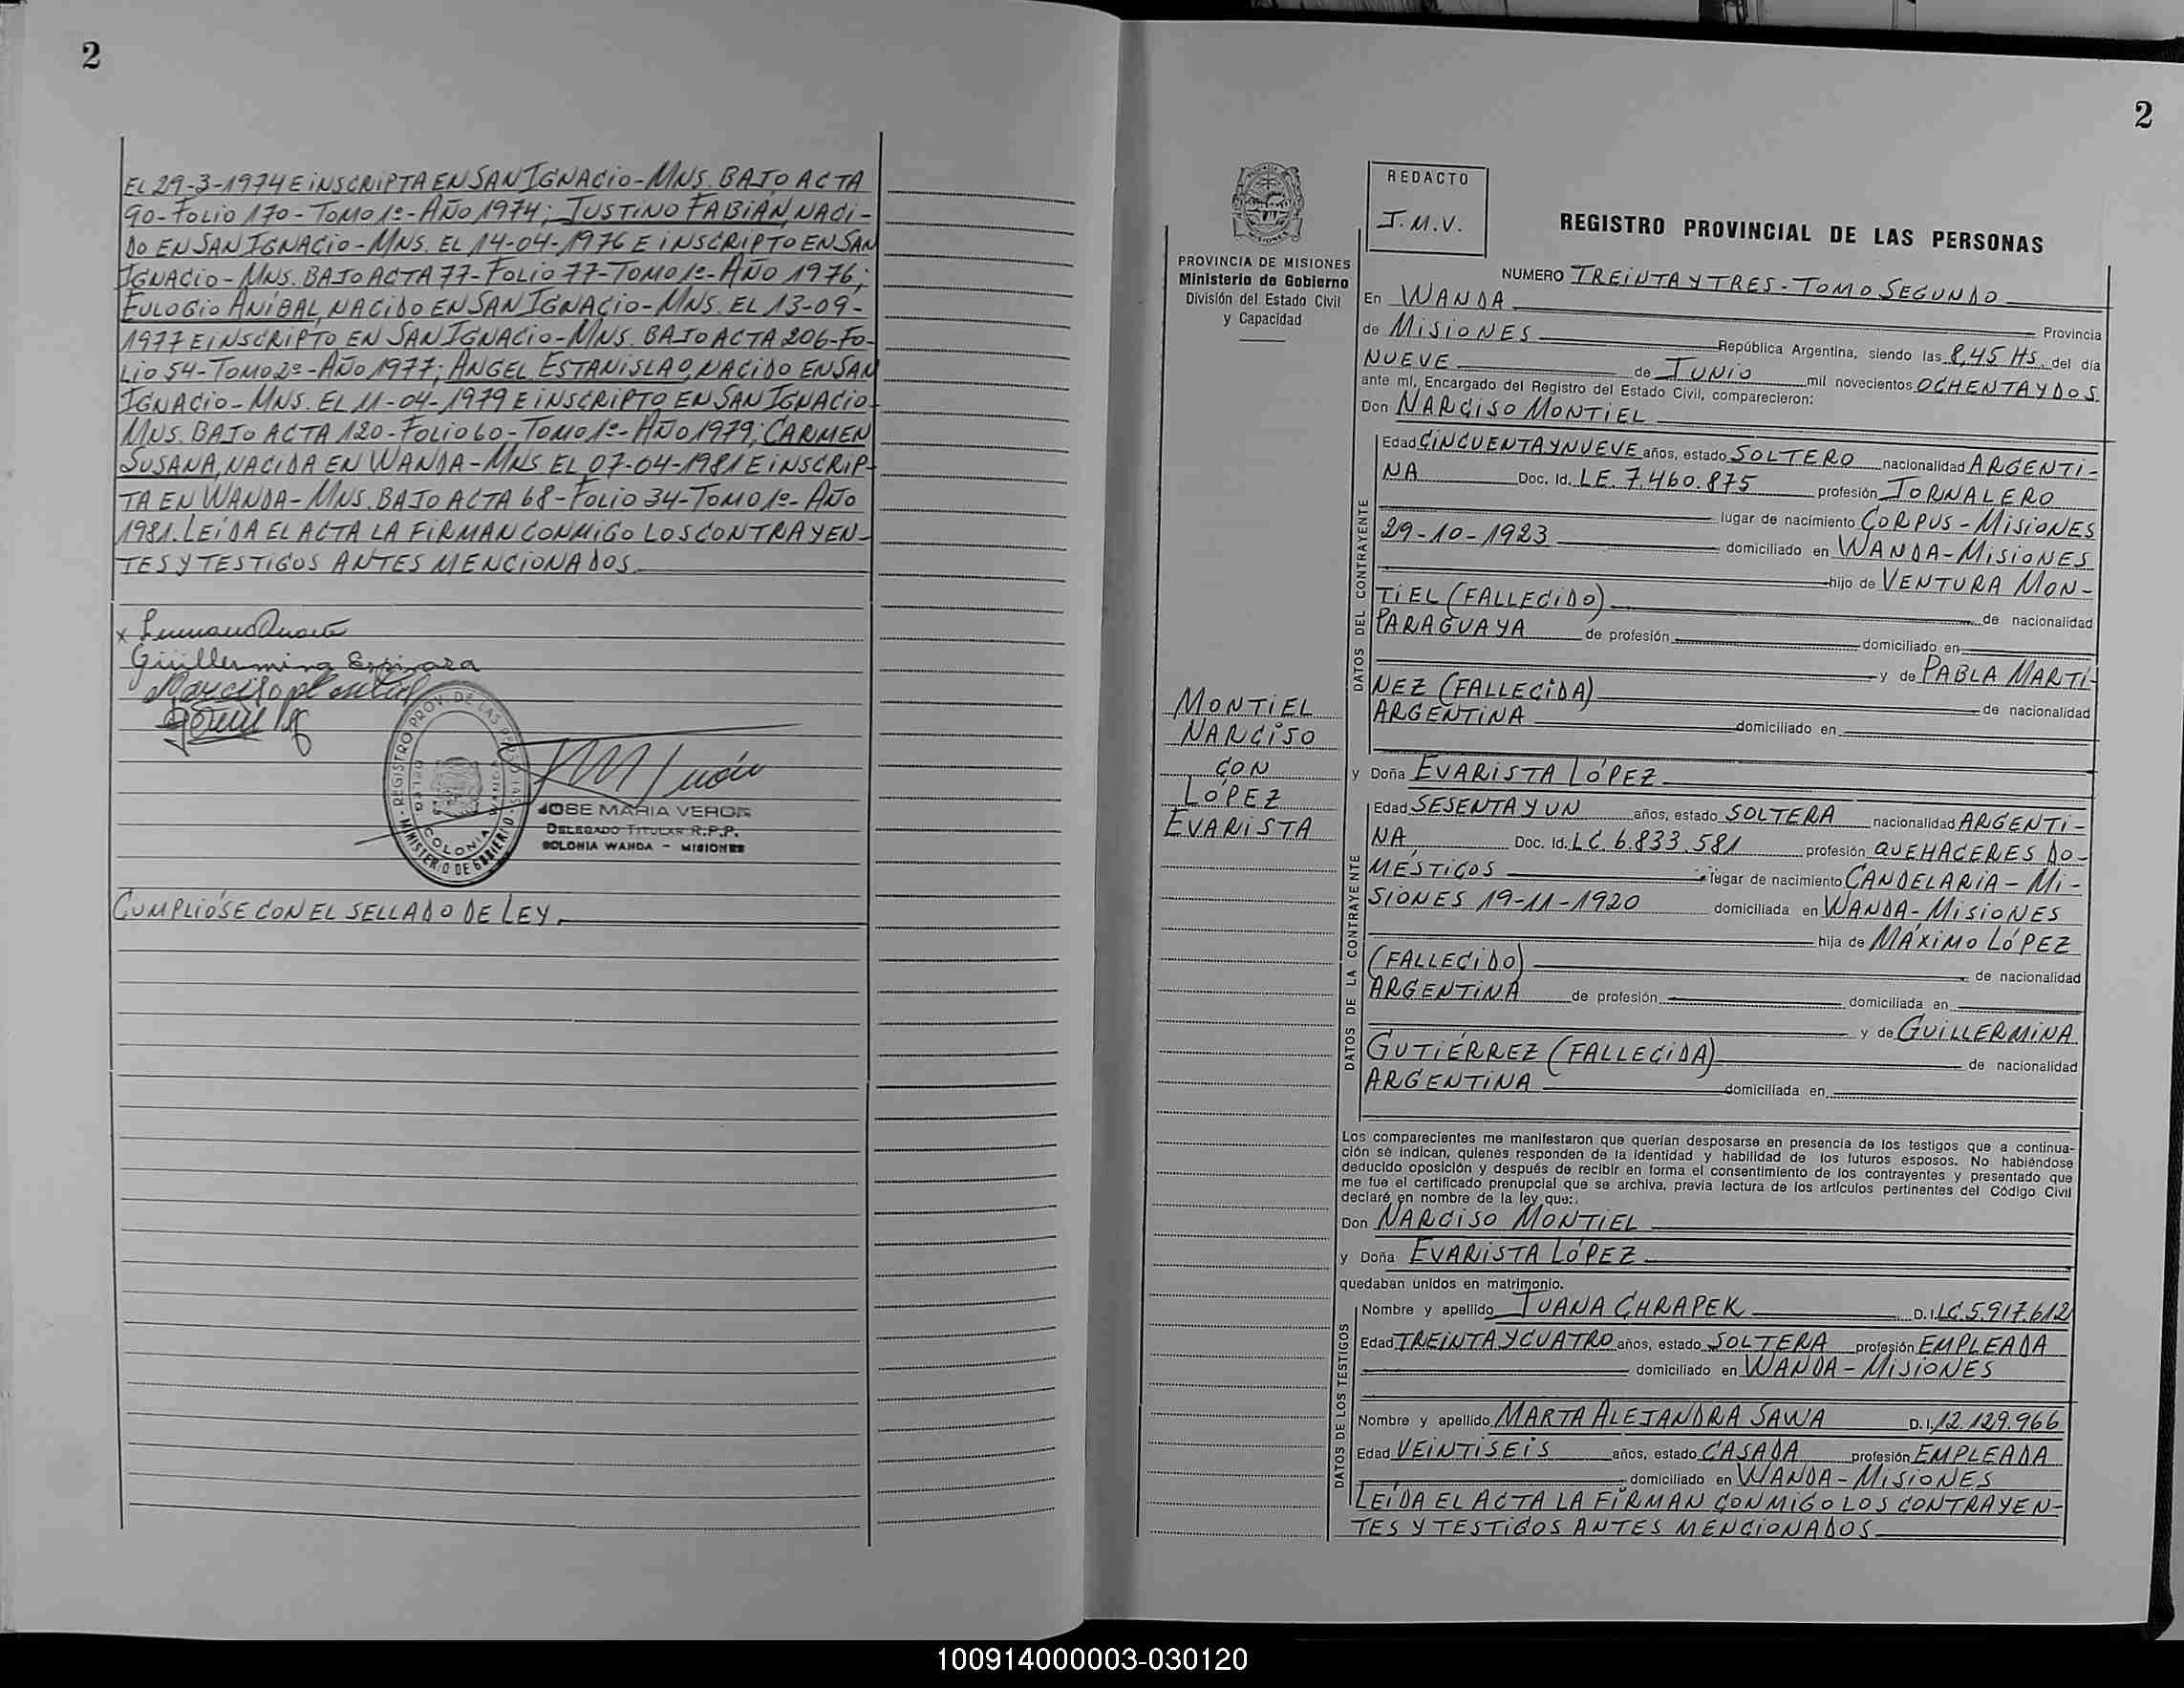 2
EL 29-3-1974 E INSCRIPTA EN SAN IGNACIO-MNS. BAJO ACTA
90-FOLIO 170-TOMO 1º-AÑO 1974; JUSTINO FABIÁN, NACI-
DO EN SAN IGNACIO-MNS. EL 14-04-1976 E INSCRIPTO EN SAN
IGNACIO-MNS. BAJO ACTA 77-FOLIO 77-TOMO 1º-AÑO 1976;
EULOGIO ANÍBAL, NACIDO EN SAN IGNACIO-MNS. EL 13-09-
1977 E INSCRIPTO EN SAN IGNACIO-MNS. BAJO ACTA 206-FO-
LIO 54-TOMO 2º-AÑO 1977; ÁNGEL ESTANISLAO, NACIDO EN SAN
IGNACIO-MNS. EL 11-04-1979 E INSCRIPTO EN SAN IGNACIO-
MNS. BAJO ACTA 120-FOLIO 60-TOMO 1º-AÑO 1979; CARMEN
SUSANA, NACIDA EN WANDA-MNS. EL 07-04-1981 E INSCRIP-
TA EN WANDA-MNS. BAJO ACTA 68-FOLIO 34-TOMO 1º-AÑO
1981. LEÍDA EL ACTA LA FIRMAN CONMIGO LOS CONTRAYEN-
TES Y TESTIGOS ANTES MENCIONADOS.
x
Guillermina Espinoza
Narciso Montiel
REGISTRO PROV. DE LAS PERSONAS
COLONIA WANDA
MINISTERIO DE GOBIERNO
JOSE MARIA VERON
DELEGADO TITULAR R.P.P.
COLONIA WANDA - MISIONES
CUMPLIÓSE CON EL SELLADO DE LEY.
2
MISIONES
PROVINCIA DE MISIONES
Ministerio de Gobierno
División del Estado Civil
y Capacidad
MONTIEL
NARCISO
CON
LÓPEZ
EVARISTA
REDACTO
J.M.V.
REGISTRO PROVINCIAL DE LAS PERSONAS
NUMERO TREINTA Y TRES-TOMO SEGUNDO
En WANDA Provincia
de MISIONES República Argentina, siendo las 8,45 HS. del día
NUEVE de JUNIO mil novecientos OCHENTA Y DOS
ante mí, Encargado del Registro del Estado Civil, comparecieron:
Don NARCISO MONTIEL
DATOS DEL CONTRAYENTE
Edad CINCUENTA Y NUEVE años, estado SOLTERO nacionalidad ARGENTI-
NA Doc. Id. LE. 7.460.875 profesión JORNALERO
lugar de nacimiento CORPUS-MISIONES
29-10-1923 domiciliado en WANDA-MISIONES
hijo de VENTURA MON-
TIEL (FALLECIDO) de nacionalidad
PARAGUAYA de profesión domiciliado en
y de PABLA MARTÍ-
NEZ (FALLECIDA) de nacionalidad
ARGENTINA domiciliado en
y Doña EVARISTA LÓPEZ
DATOS DE LA CONTRAYENTE
Edad SESENTA Y UN años, estado SOLTERA nacionalidad ARGENTI-
NA Doc. Id. LC. 6.833.581 profesión QUEHACERES DO-
MÉSTICOS lugar de nacimiento CANDELARIA-MI-
SIONES 19-11-1920 domiciliada en WANDA-MISIONES
hija de MÁXIMO LÓPEZ
(FALLECIDO) de nacionalidad
ARGENTINA de profesión domiciliada en
y de GUILLERMINA
GUTIÉRREZ (FALLECIDA) de nacionalidad
ARGENTINA domiciliada en
Los comparecientes me manifestaron que querían desposarse en presencia de los testigos que a continua-
ción se indican, quienes responden de la identidad y habilidad de los futuros esposos. No habiéndose
deducido oposición y después de recibir en forma el consentimiento de los contrayentes y presentado que
me fue el certificado prenupcial que se archiva, previa lectura de los artículos pertinentes del Código Civil
declaré en nombre de la ley que:
Don NARCISO MONTIEL
y Doña EVARISTA LÓPEZ
quedaban unidos en matrimonio.
DATOS DE LOS TESTIGOS
Nombre y apellido JUANA CHRAPEK D.I. LC. 5.917.612
Edad TREINTA Y CUATRO años, estado SOLTERA profesión EMPLEADA
domiciliado en WANDA-MISIONES
Nombre y apellido MARTA ALEJANDRA SAWA D.I. 12.129.966
Edad VEINTISEIS años, estado CASADA profesión EMPLEADA
domiciliado en WANDA-MISIONES
LEÍDA EL ACTA LA FIRMAN CONMIGO LOS CONTRAYEN-
TES Y TESTIGOS ANTES MENCIONADOS
100914000003-030120